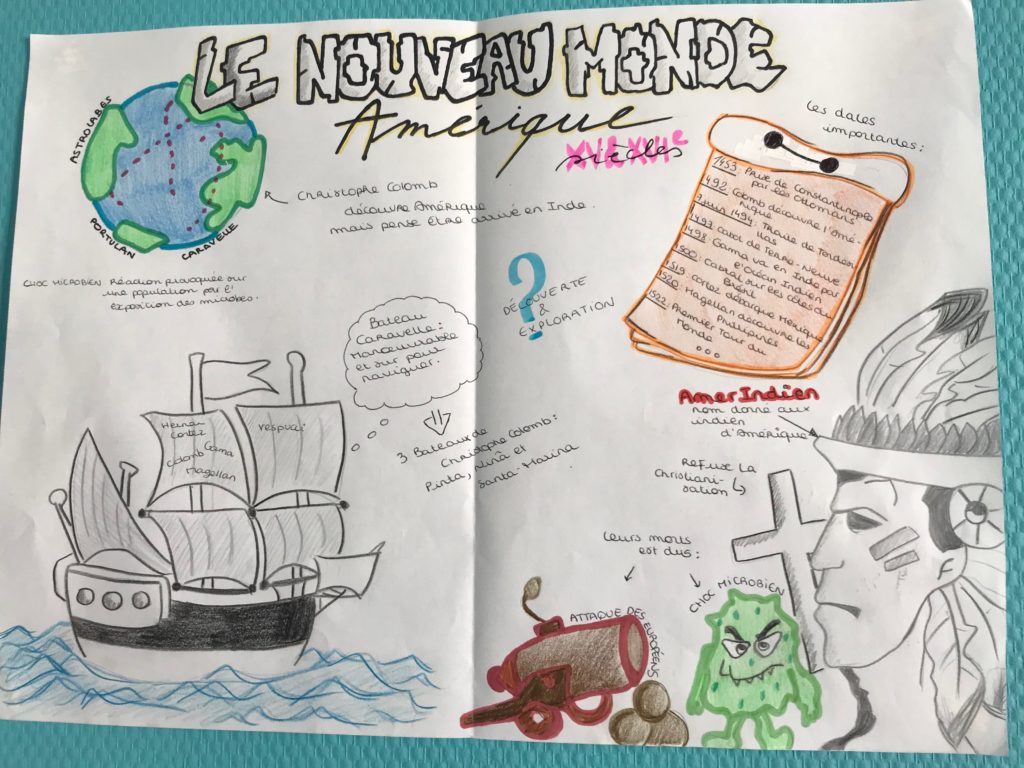 LE NOUVEAU MONDE
Amérique
XVe XVIe
siècles
ASTROLABES
PORTULAN
CARAVELLE
Christophe Colomb
découvre Amérique
mais pense être arrivé en Inde.
CHOC MICROBIEN Réaction provoquée sur
une population par l'
exposition des microbes.
Les dates
importantes:
1453: Prise de Constantinople
par les Ottomans
1492: Colomb découvre l'Amé-
rique
7 juin 1494: Traité de Tordesi-
llas
1497 Cabot de TERRE-NEUVE
1498: Gama va en Inde par
l'Océan Indien
1500: Cabral sur les côtes du
Brésil
1519: Cortez débarque Mexique
1520: Magellan découvre les
Philippines
1522: Premier Tour du
Monde
...
?
DÉCOUVERTE
&
EXPLORATION
Bateau
Caravelle:
Manoeuvrable
et sur pour
naviguer.
3 Bateaux de
Christophe Colomb:
Pinta, Ninã et
Santa-Marina
Hernan
Cortez
Gama
Colomb
Magellan
vespucci
AmerIndien
nom donné aux
indien
d'Amérique
REFUSE LA
Christiani-
sation
Leurs morts
est dus:
ATTAQUE DES EUROPÉENS
CHOC MICROBIEN